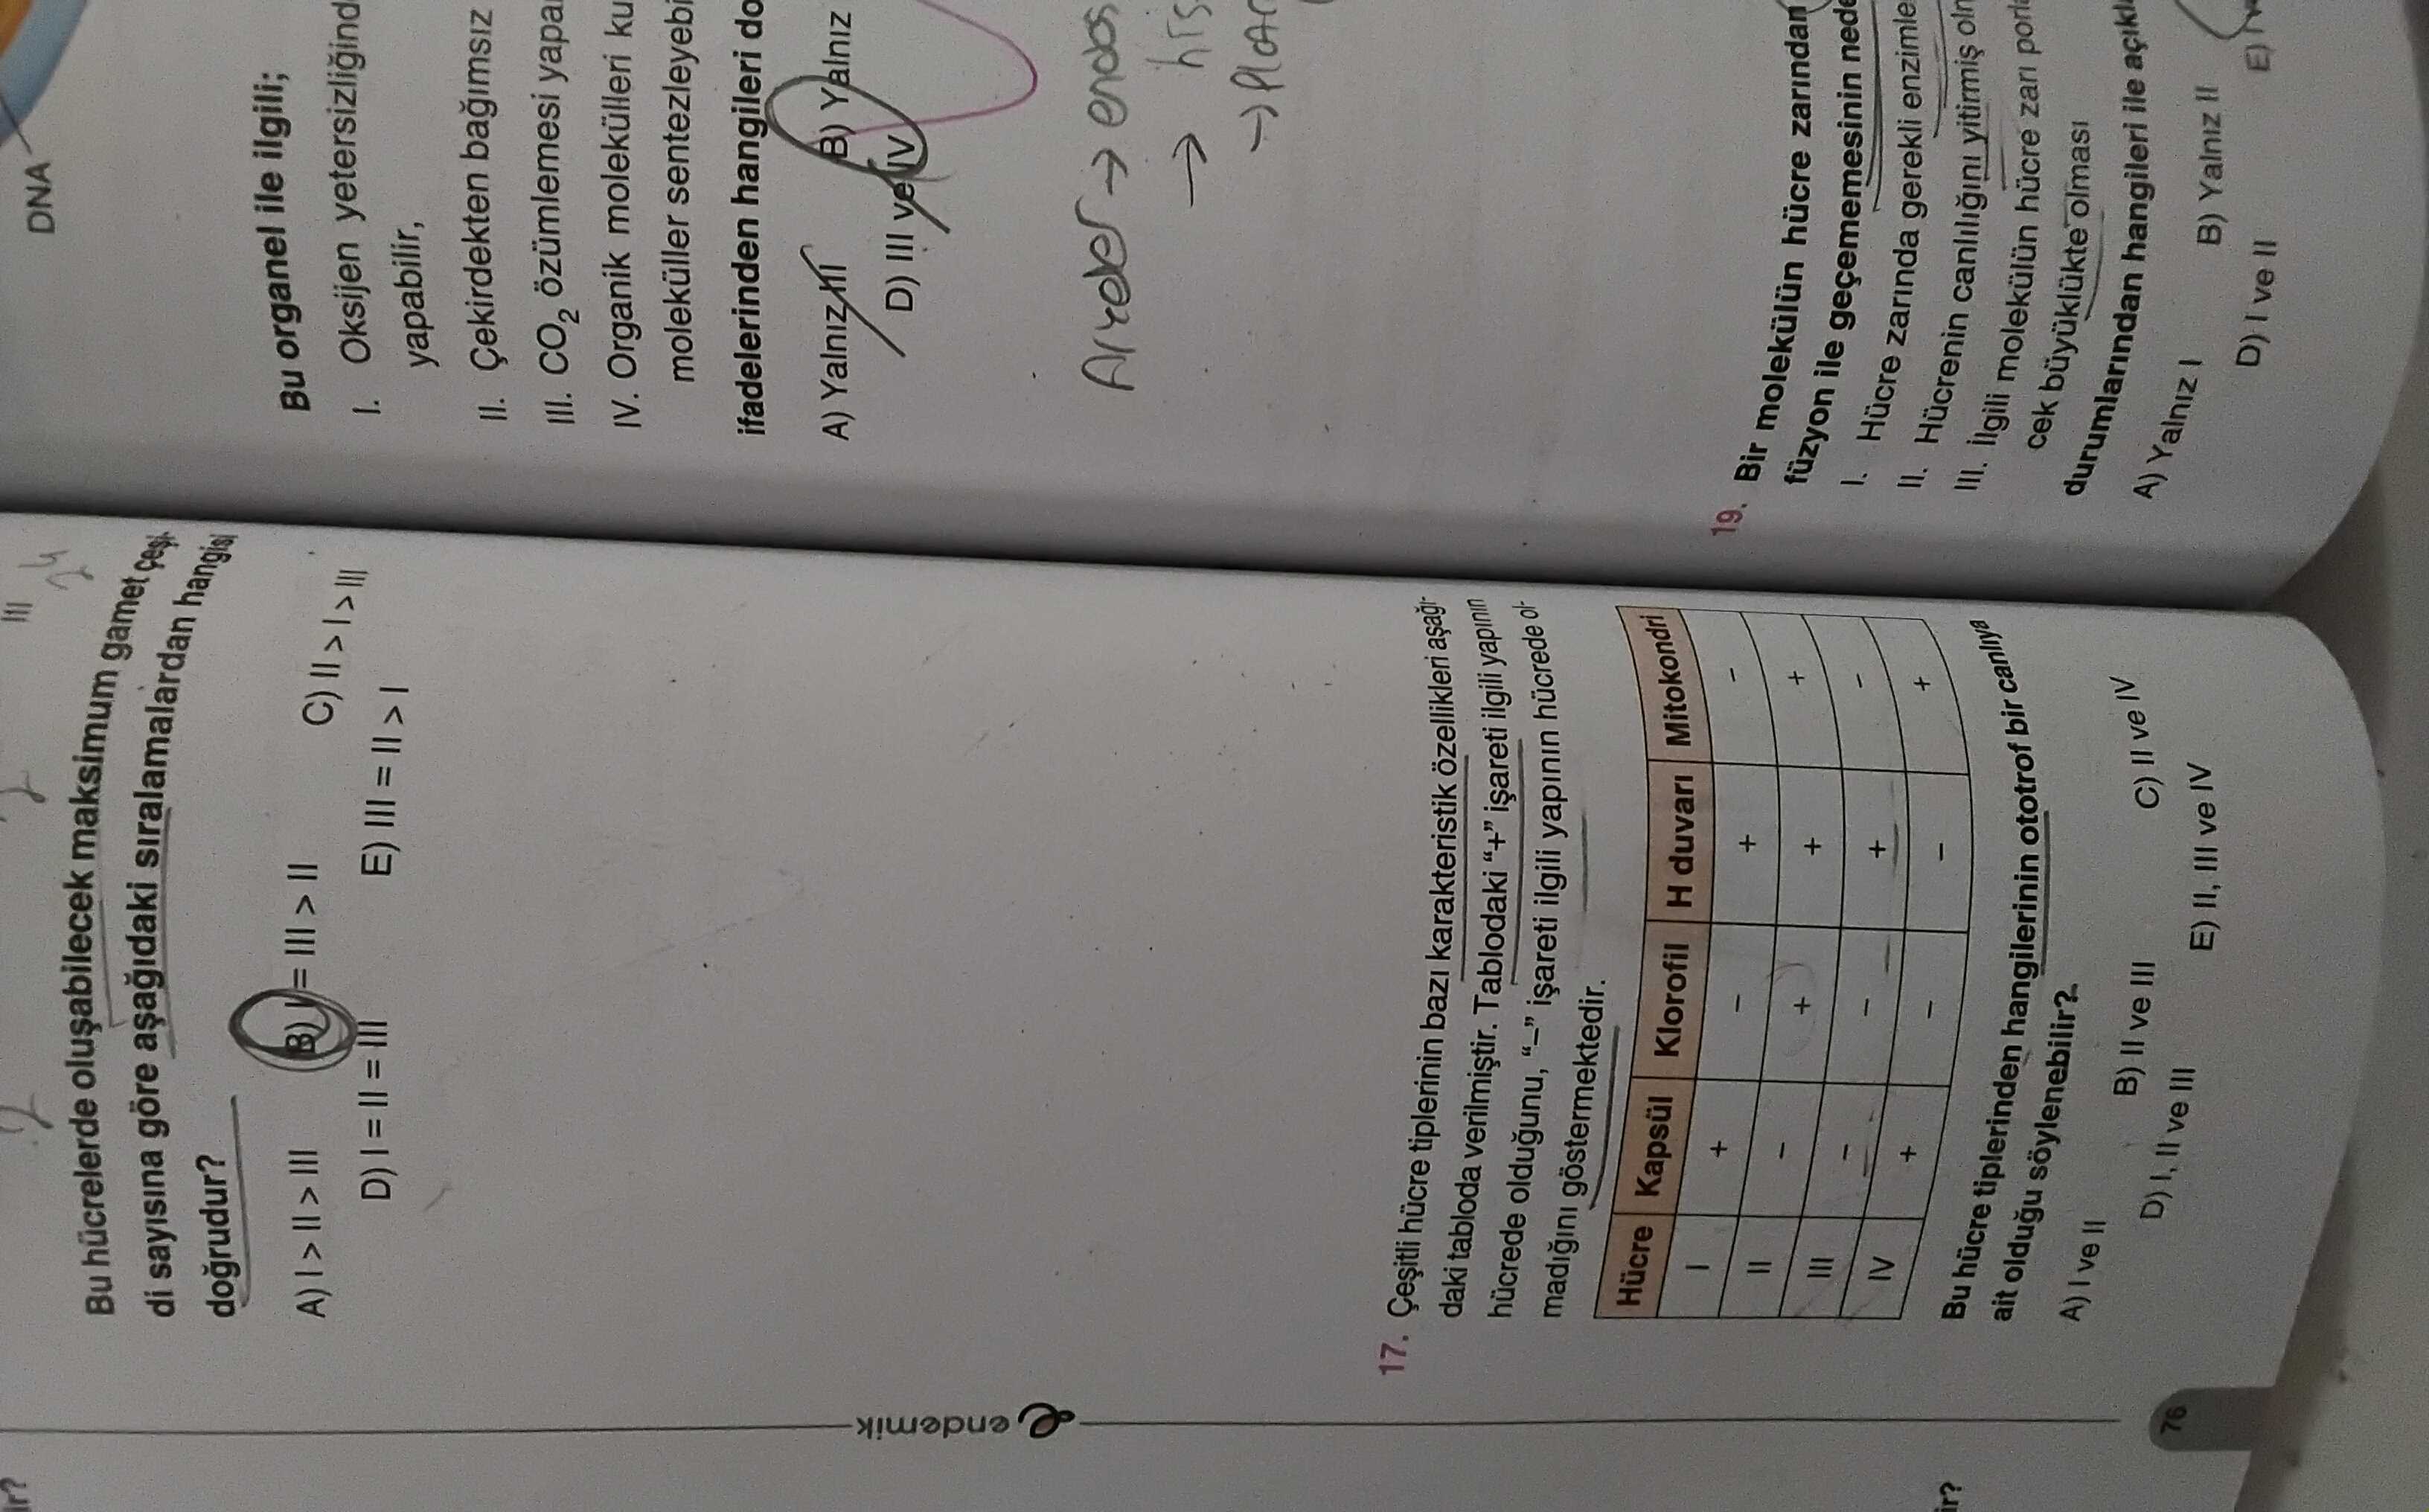 III
24
Bu hücrelerde oluşabilecek maksimum gamet çeşi-
di sayısına göre aşağıdaki sıralamalardan hangisi
doğrudur?
A) I > II > III
B) I = III > II
C) II > I > III
D) I = II = III
E) III = II > I
endemik
17. Çeşitli hücre tiplerinin bazı karakteristik özellikleri aşağı-
daki tabloda verilmiştir. Tablodaki “+” işareti ilgili yapının
hücrede olduğunu, “–” işareti ilgili yapının hücrede ol-
madığını göstermektedir.
Hücre Kapsül Klorofil H duvarı Mitokondri
I + – + –
II – + + +
III – – + –
IV + – – +
Bu hücre tiplerinden hangilerinin ototrof bir canlıya
ait olduğu söylenebilir?
A) I ve II
B) II ve III
C) II ve IV
D) I, II ve III
E) II, III ve IV
76
DNA
Bu organel ile ilgili;
I. Oksijen yetersizliğind
yapabilir,
II. Çekirdekten bağımsız
III. CO2 özümlemesi yapa
IV. Organik molekülleri ku
moleküller sentezleyebi
ifadelerinden hangileri do
A) Yalnız III
B) Yalnız
D) III ve IV
→ endos
→ his
19. Bir molekülün hücre zarından
füzyon ile geçememesinin nede
I. Hücre zarında gerekli enzimle
II. Hücrenin canlılığını yitirmiş olm
III. İlgili molekülün hücre zarı porla
cek büyüklükte olması
durumlarından hangileri ile açıkla
A) Yalnız I
B) Yalnız II
D) I ve II
E)
ir?
ir?